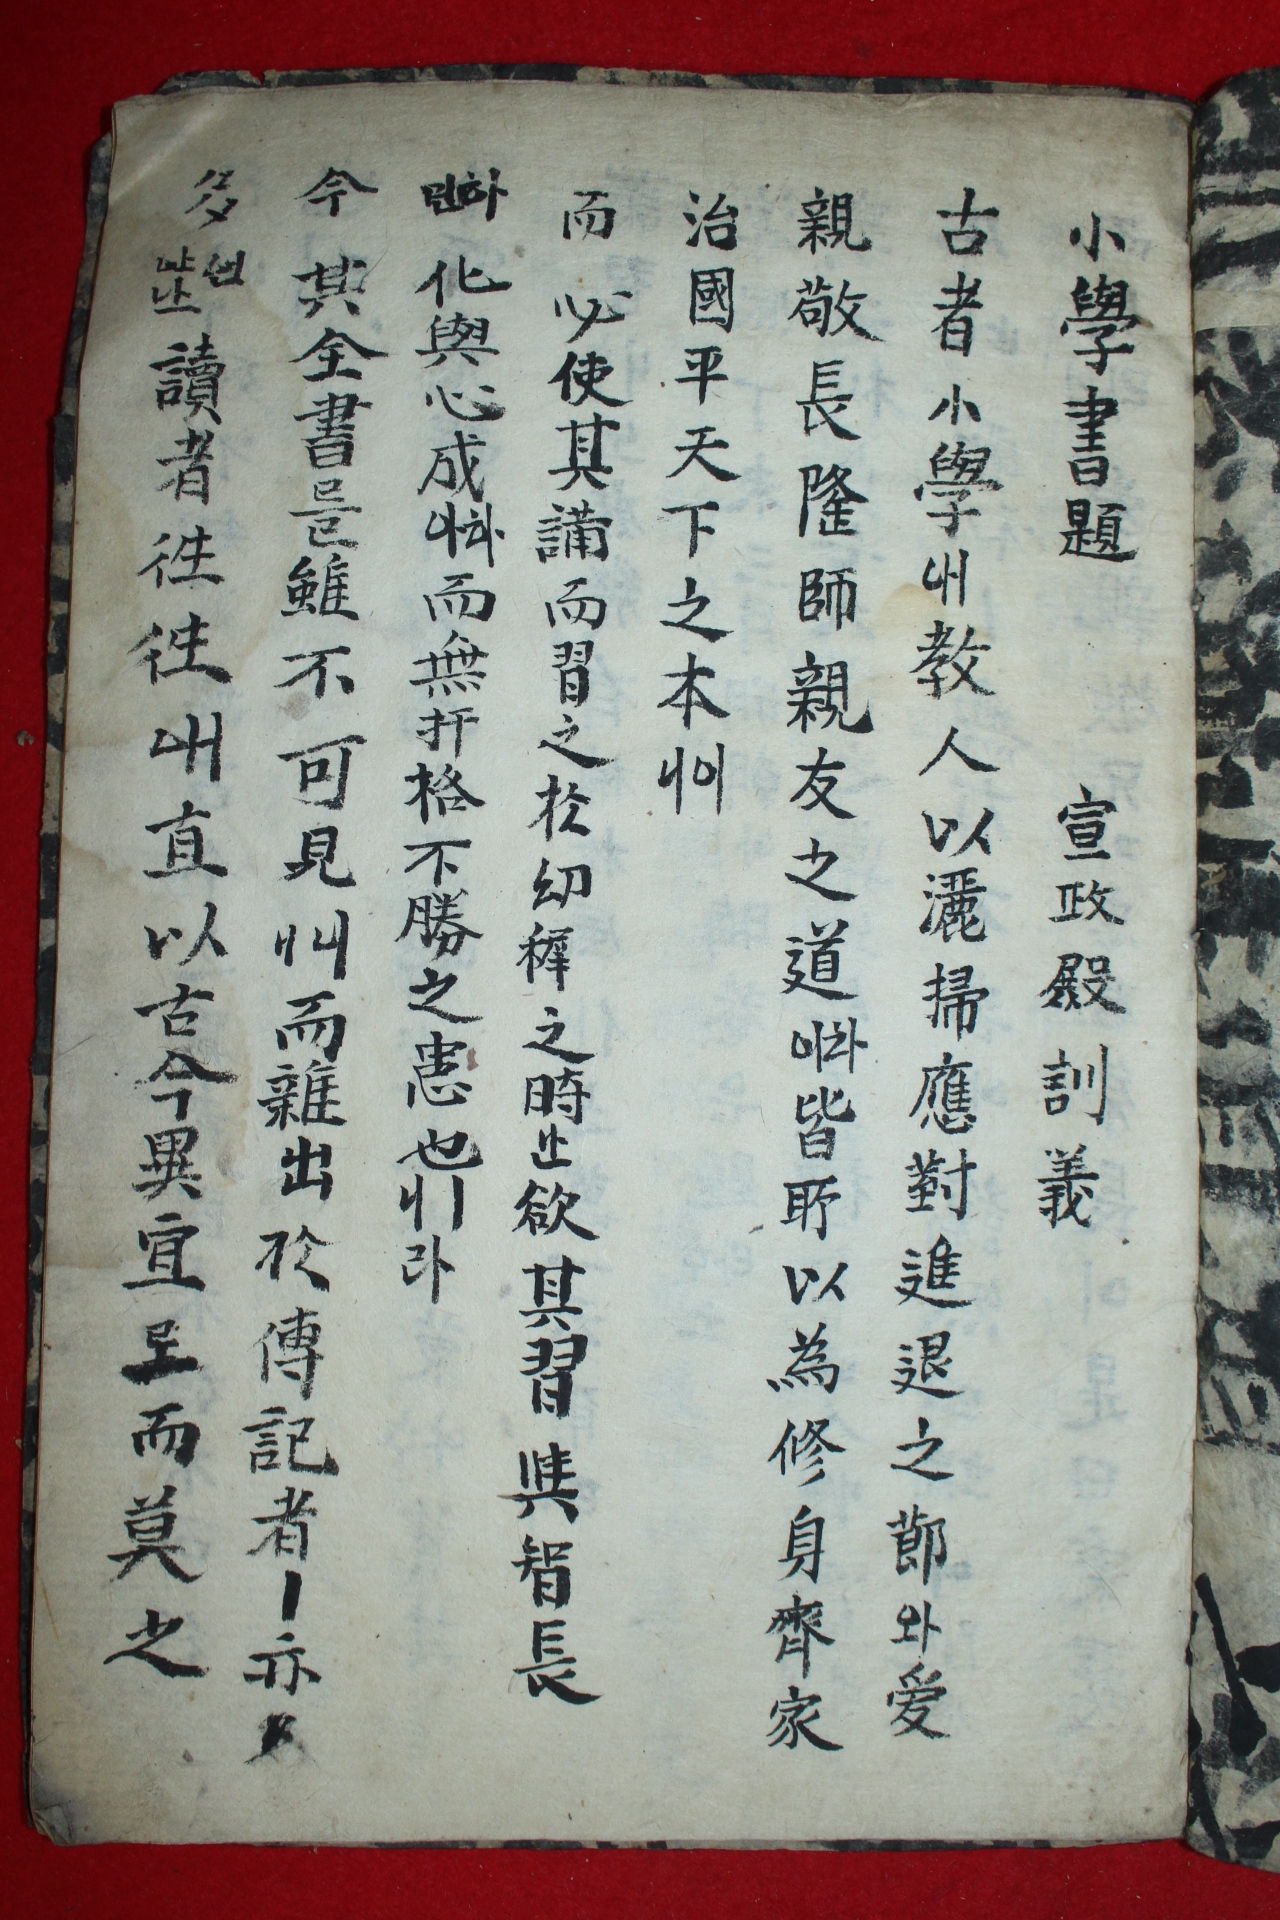 小學書題 宣政殿訓義
古者小學애教人以灑掃應對進退之節와愛
親敬長隆師親友之道皆所以為修身齊家
治國平天下之本
而必使其講而習之於幼穉之時는欲其習與智長
化與心成而無扞格不勝之患也ㅣ라
今其全書를雖不可見而雜出於傳記者ㅣ亦
多讀者往往애直以古今異宜로而莫之